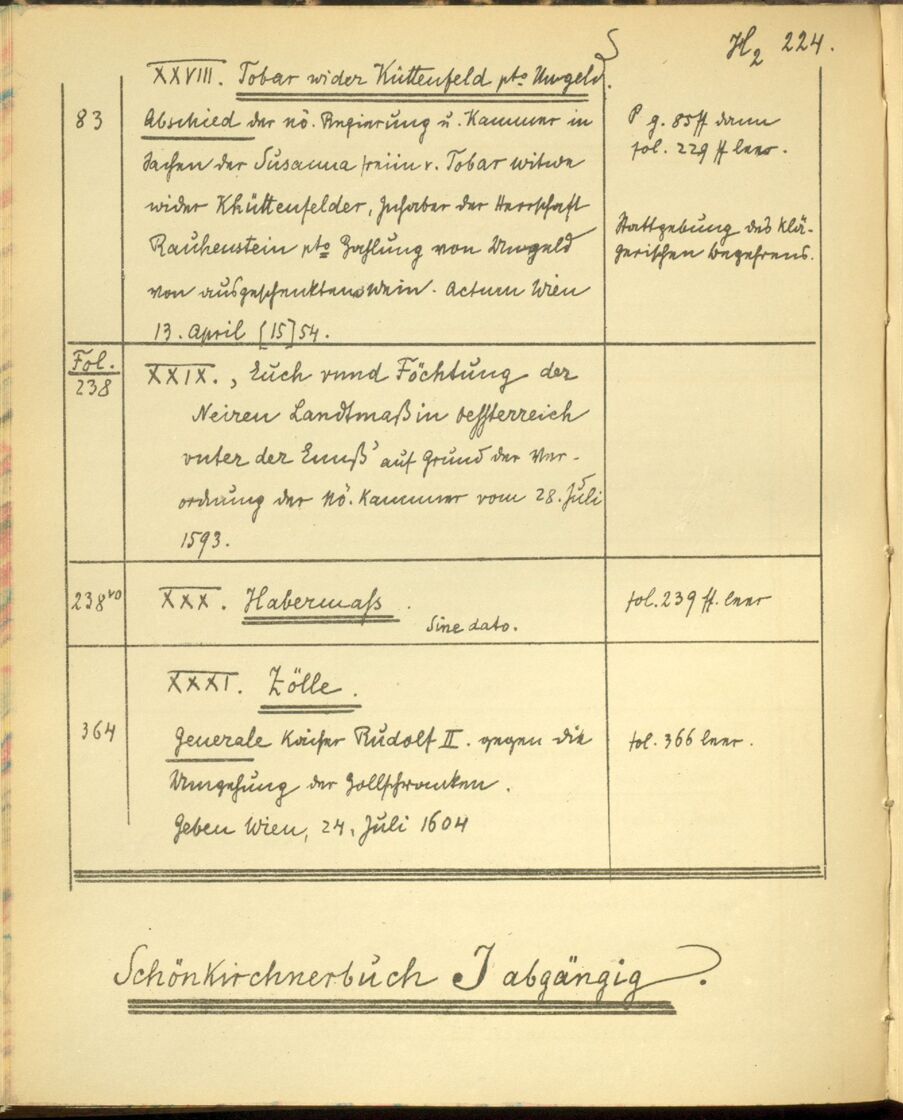 H₂ 224.
XXVIII. Tobar wider Küttenfeld pto Umgeld.
83
Abschied der nö. Regierung u. Kammer in
Sachen der Susanna freiin v. Tobar witwe
wider Khüttenfelder, Inhaber der Herrschaft
Rauhenstein pto Zahlung von Umgeld
von ausgeschenktem wein. Actum Wien
13. April [15]54.
g. 85ff dann
fol. 229 ff leer.
Stattgebung des klä-
gerischen Begehrens.
Fol.
238
XXIX. „Zuech vnnd Föchtung der
Neiren Landtmaß in Oessterreich
vnter der Ennß" auf Grund der Ver-
ordnung der nö. Kammer vom 28. Juli
1593.
238vo
XXX. Habermass.
Sine dato.
fol. 239 ff. leer
XXXI. Zölle.
364
Generale Kaiser Rudolf II. gegen die
Umgehung der Zollschranken.
Geben Wien, 24. Juli 1604
fol. 366 leer.
Schönkirchnerbuch J abgängig.